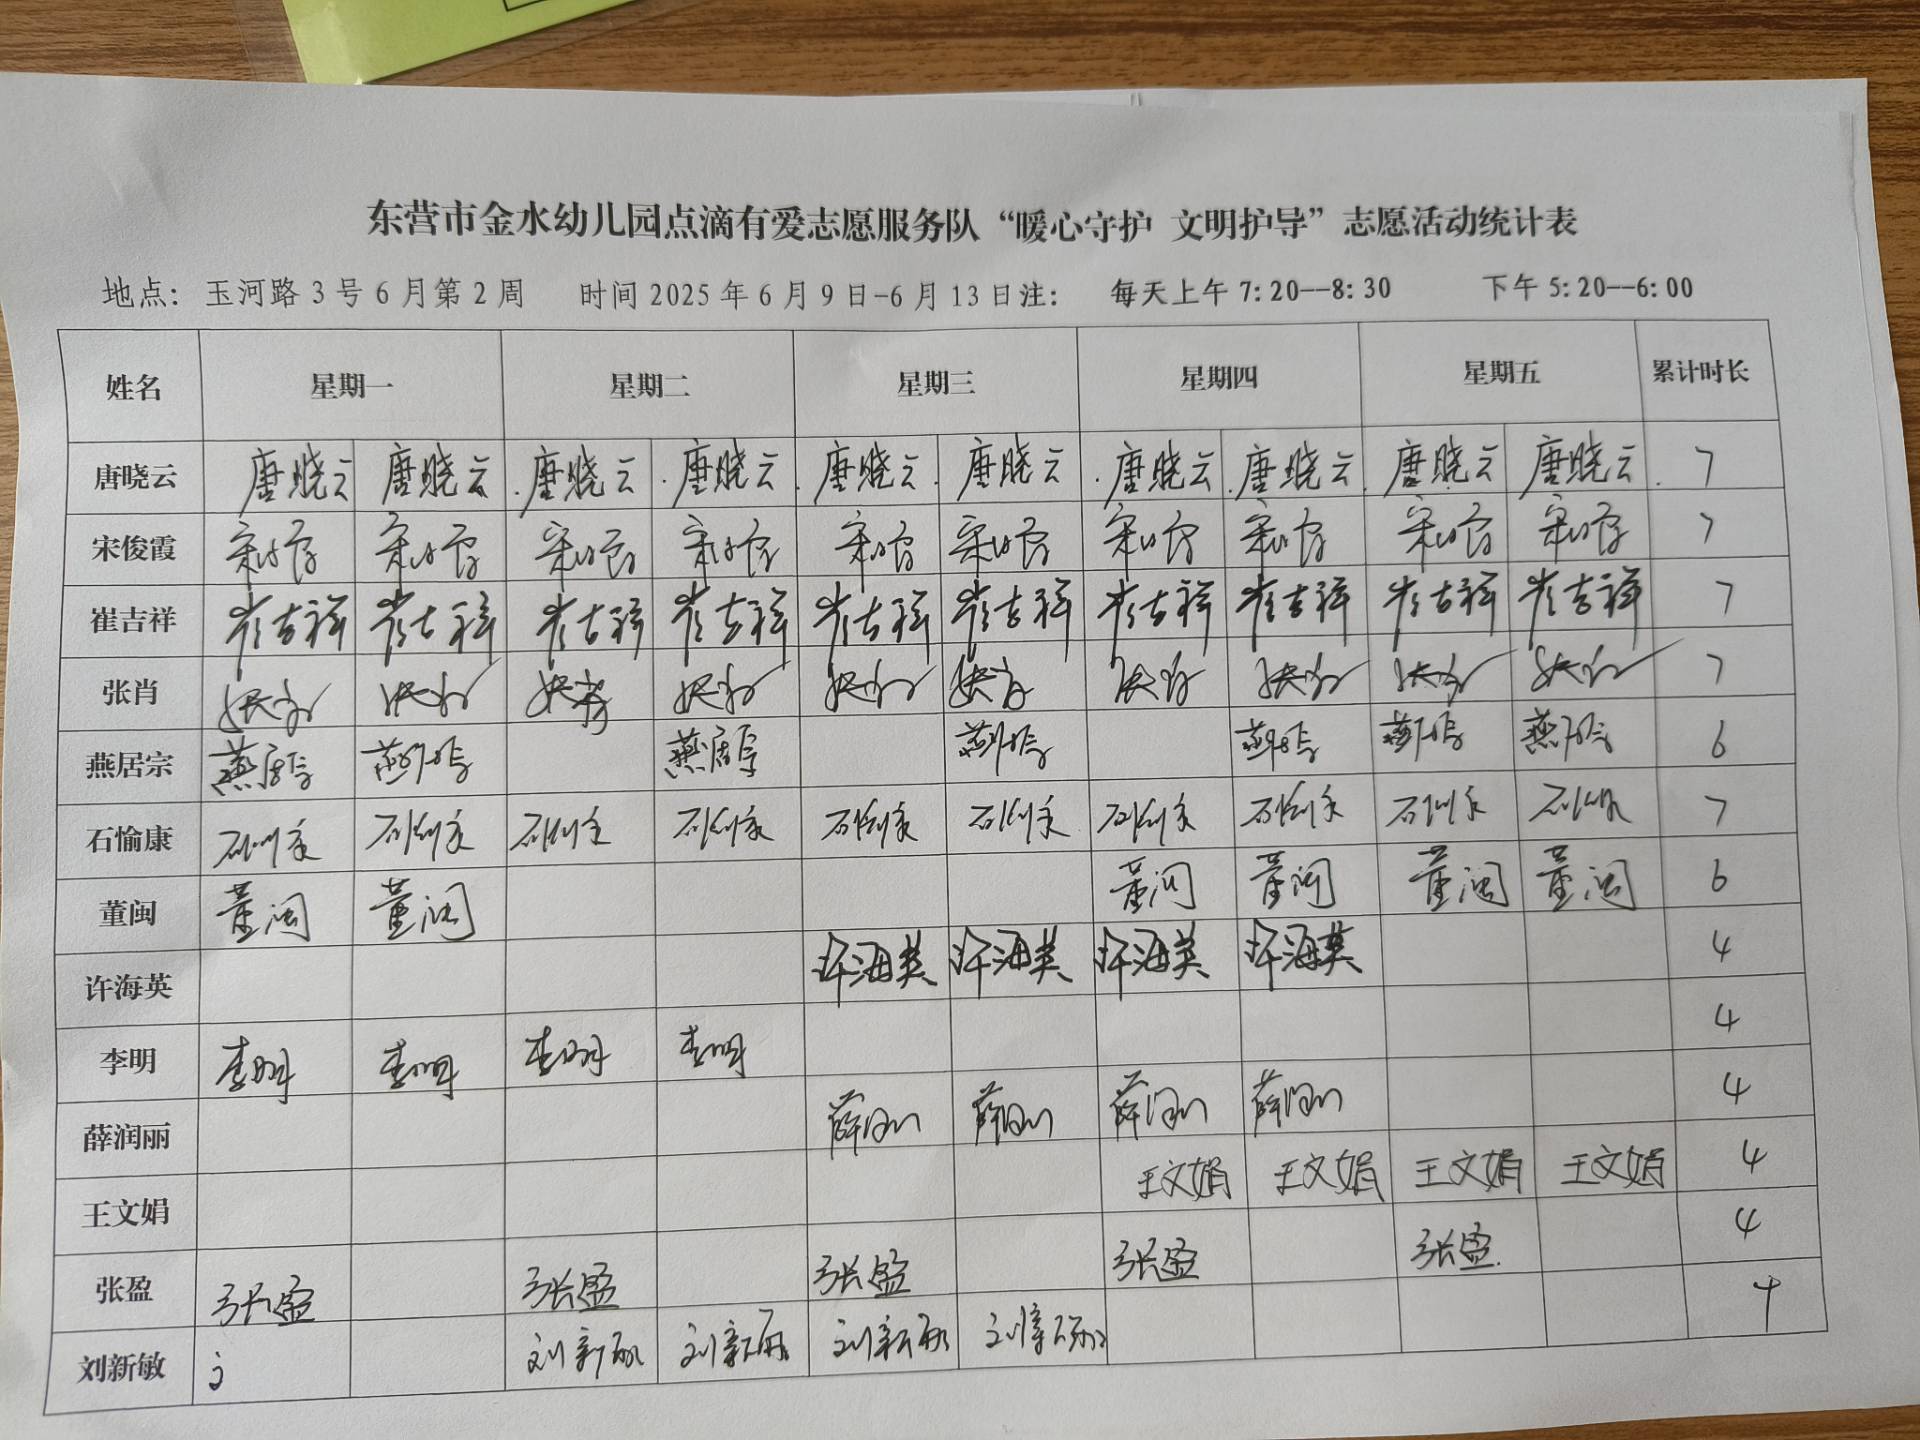 东营市金水幼儿园点滴有爱志愿服务队“暖心守护 文明护导”志愿活动统计表
地点：玉河路3号6月第2周 时间2025年6月9日-6月13日注： 每天上午7:20--8:30 下午5:20--6:00
姓名 星期一 星期二 星期三 星期四 星期五 累计时长
唐晓云 唐晓云 唐晓云 唐晓云 唐晓云 唐晓云 唐晓云 唐晓云 唐晓云 唐晓云 唐晓云 7
宋俊霞 宋俊霞 宋俊霞 宋俊霞 宋俊霞 宋俊霞 宋俊霞 宋俊霞 宋俊霞 宋俊霞 宋俊霞 7
崔吉祥 崔吉祥 崔吉祥 崔吉祥 崔吉祥 崔吉祥 崔吉祥 崔吉祥 崔吉祥 崔吉祥 崔吉祥 7
张肖 张肖 张肖 张肖 张肖 张肖 张肖 张肖 张肖 张肖 张肖 7
燕居宗 燕居宗 燕居宗 燕居宗 燕居宗 燕居宗 燕居宗 燕居宗 6
石愉康 石愉康 石愉康 石愉康 石愉康 石愉康 石愉康 石愉康 石愉康 石愉康 石愉康 7
董闽 董闽 董闽 董闽 董闽 董闽 董闽 6
许海英 许海英 许海英 许海英 许海英 4
李明 李明 李明 李明 李明 4
薛润丽 薛润丽 薛润丽 薛润丽 薛润丽 4
王文娟 王文娟 王文娟 王文娟 王文娟 4
张盈 张盈 张盈 张盈 张盈 张盈 4
刘新敏 刘新敏 刘新敏 刘新敏 刘新敏 4